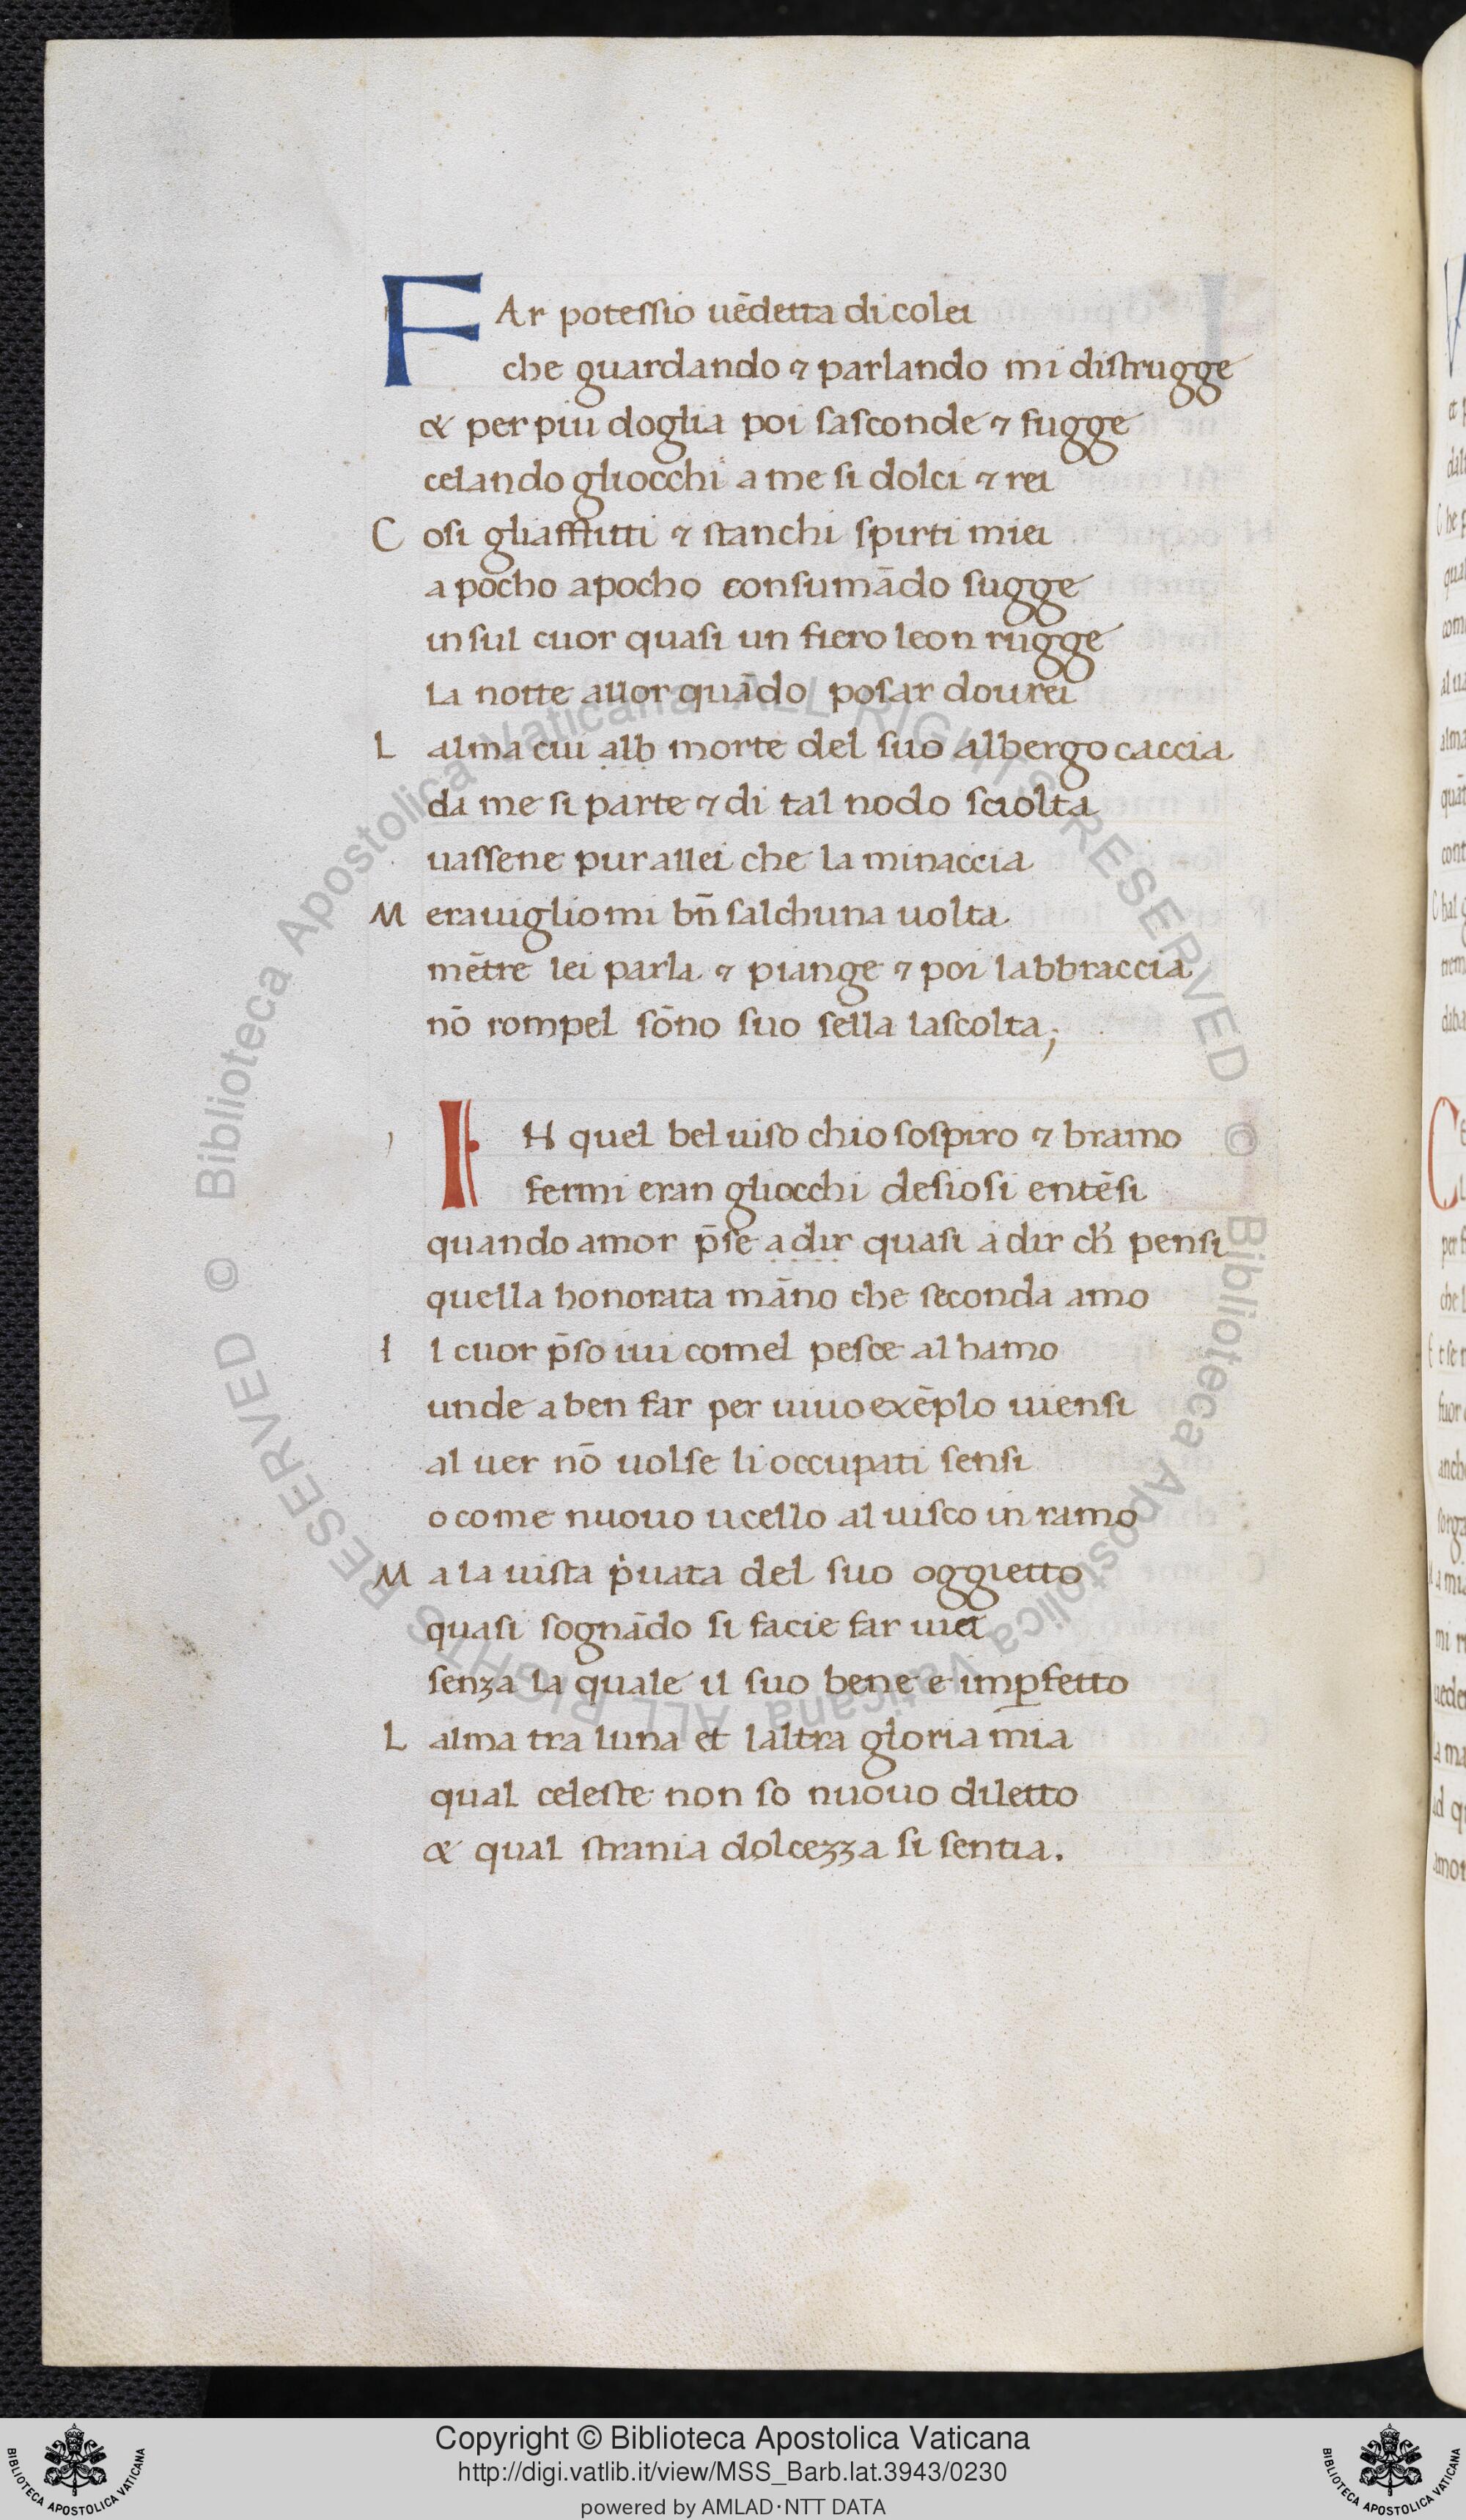 FAr potessio uēdetta di colei
che guardando ⁊ parlando mi distrugge
& per piu doglia poi sasconde ⁊ fugge
celando gliocchi a me si dolci ⁊ rei
Cosi gliafflitti ⁊ stanchi spirti miei
a pocho apocho consumādo sugge
in sul cuor quasi un fiero leon rugge
la notte allor quādo posar dourei
Lalma cui alb morte del suo albergo caccia
da me si parte ⁊ di tal nodo sciolta
uassene pur allei che la minaccia
Merauigliomi bn̄ salchuna uolta
mētre lei parla ⁊ piange ⁊ poi labbraccia
nō rompel sōno suo sella lascolta;
IN quel bel uiso chio sospiro ⁊ bramo
fermi eran gliocchi desiosi entēsi
quando amor p̄se a dir quasi a dir ch̓ pensi
quella honorata māno che seconda amo
Il cuor p̄so iui comel pesce al hamo
unde a ben far per uiuo exēplo uiensi
al uer nō uolse li occupati sensi
o come nuouo ucello al uisco in ramo
Ma la uista p̓uata del suo oggietto
quasi sognādo si facie far uiei
senza la quale il suo bene e imꝑfetto
Lalma tra luna et laltra gloria mia
qual celeste non so nuouo diletto
& qual strania dolcezza si sentia.
© Biblioteca Apostolica Vaticana ALL RIGHTS RESERVED
© Biblioteca Apostolica Vaticana ALL RIGHTS RESERVED
Copyright © Biblioteca Apostolica Vaticana
http://digi.vatlib.it/view/MSS_Barb.lat.3943/0230
powered by AMLAD·NTT DATA
BIBLIOTECA APOSTOLICA VATICANA
BIBLIOTECA APOSTOLICA VATICANA